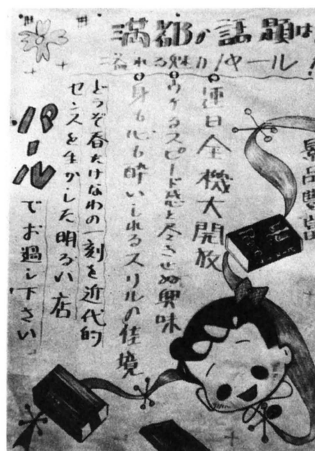 満都の話題は
溢れる魅力パール！
景品豊富
○連日全機大開放
○ウケるスピード感と尽きせぬ興味
○身も心も酔いしれるスリルの佳境
どうぞ春たけなわの一刻を近代的
センスを生かした明るい店
パールでお過し下さい